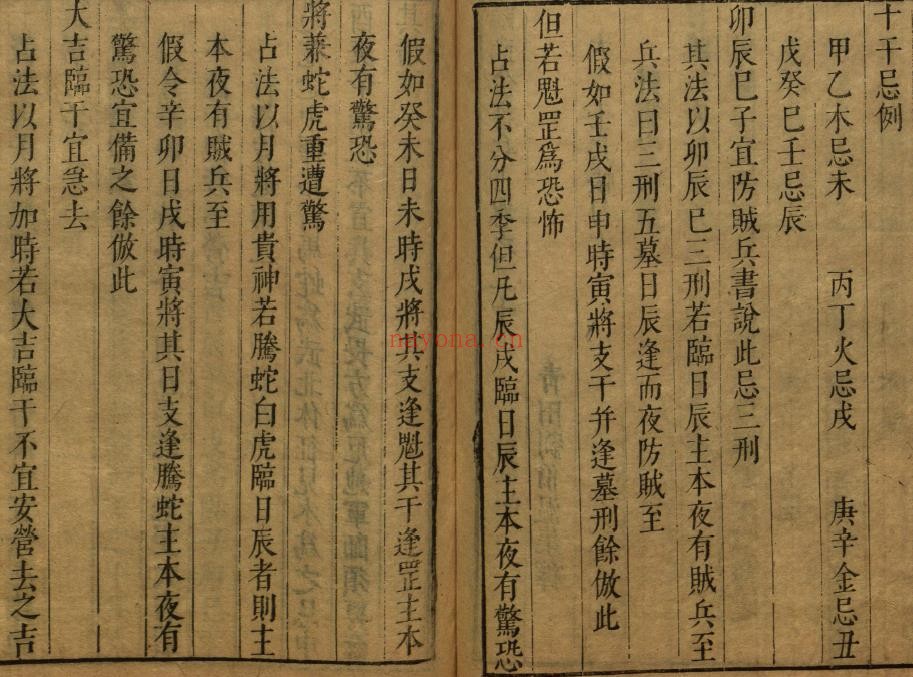 十干忌例
甲乙木忌未　丙丁火忌戌　庚辛金忌丑
戊癸巳壬忌辰
卯辰巳子宜防賊兵書說此忌三刑
其法以卯辰巳三刑若臨日辰主本夜有賊兵至
兵法曰三刑五墓日辰逢而夜防賊至
假如壬戌日申時寅將支干并逢墓刑餘倣此
但若魁罡爲恐怖
占法不分四季但凡辰戌臨日辰主本夜有驚恐
假如癸未日未時戌將其支逢魁其干逢罡主本
夜有驚恐
將兼蛇虎重遭驚
占法以月將用貴神若騰蛇白虎臨日辰者則主
本夜有賊兵至
假令辛卯日戌時寅將其日支逢騰蛇主本夜有
驚恐宜備之餘倣此
大吉臨干宜急去
占法以月將加時若大吉臨干不宜安營去之吉
nayona.cn